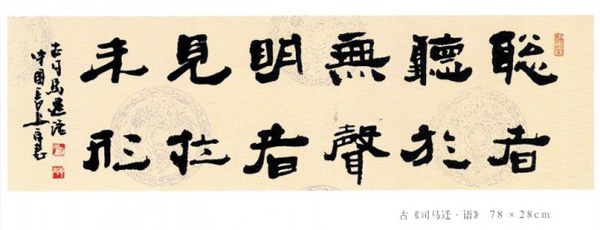 聪者
聽於
無聲
明者
見於
未形
古司馬遷语
中國
古《司马迁·语》 78×28cm